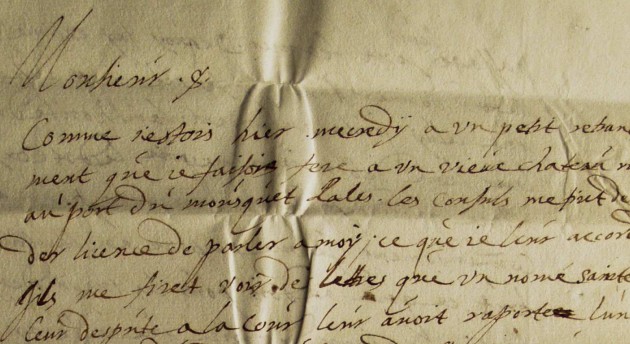 Monsieur
Comme iestois hier mecredÿ a vn petit retran
ment que ie faisois fere a vn vieux chateau
au port du mousquet les consuls me
der licence de parler a moÿ, ce que ie leur accord
Ils me firet voir de lettres que vn nomé sainte
leur despute a la cour leur auoit raporte lun